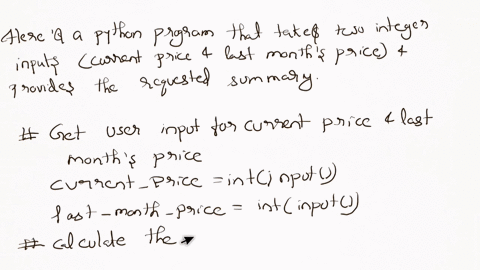 Here's a python prgram that takes two integer
inputs (current price & last month's price) &
provides the requested summary.
# Get user input for current price & last
month's price
current_price = int(input())
last_month_price = int(input())
# calculate the